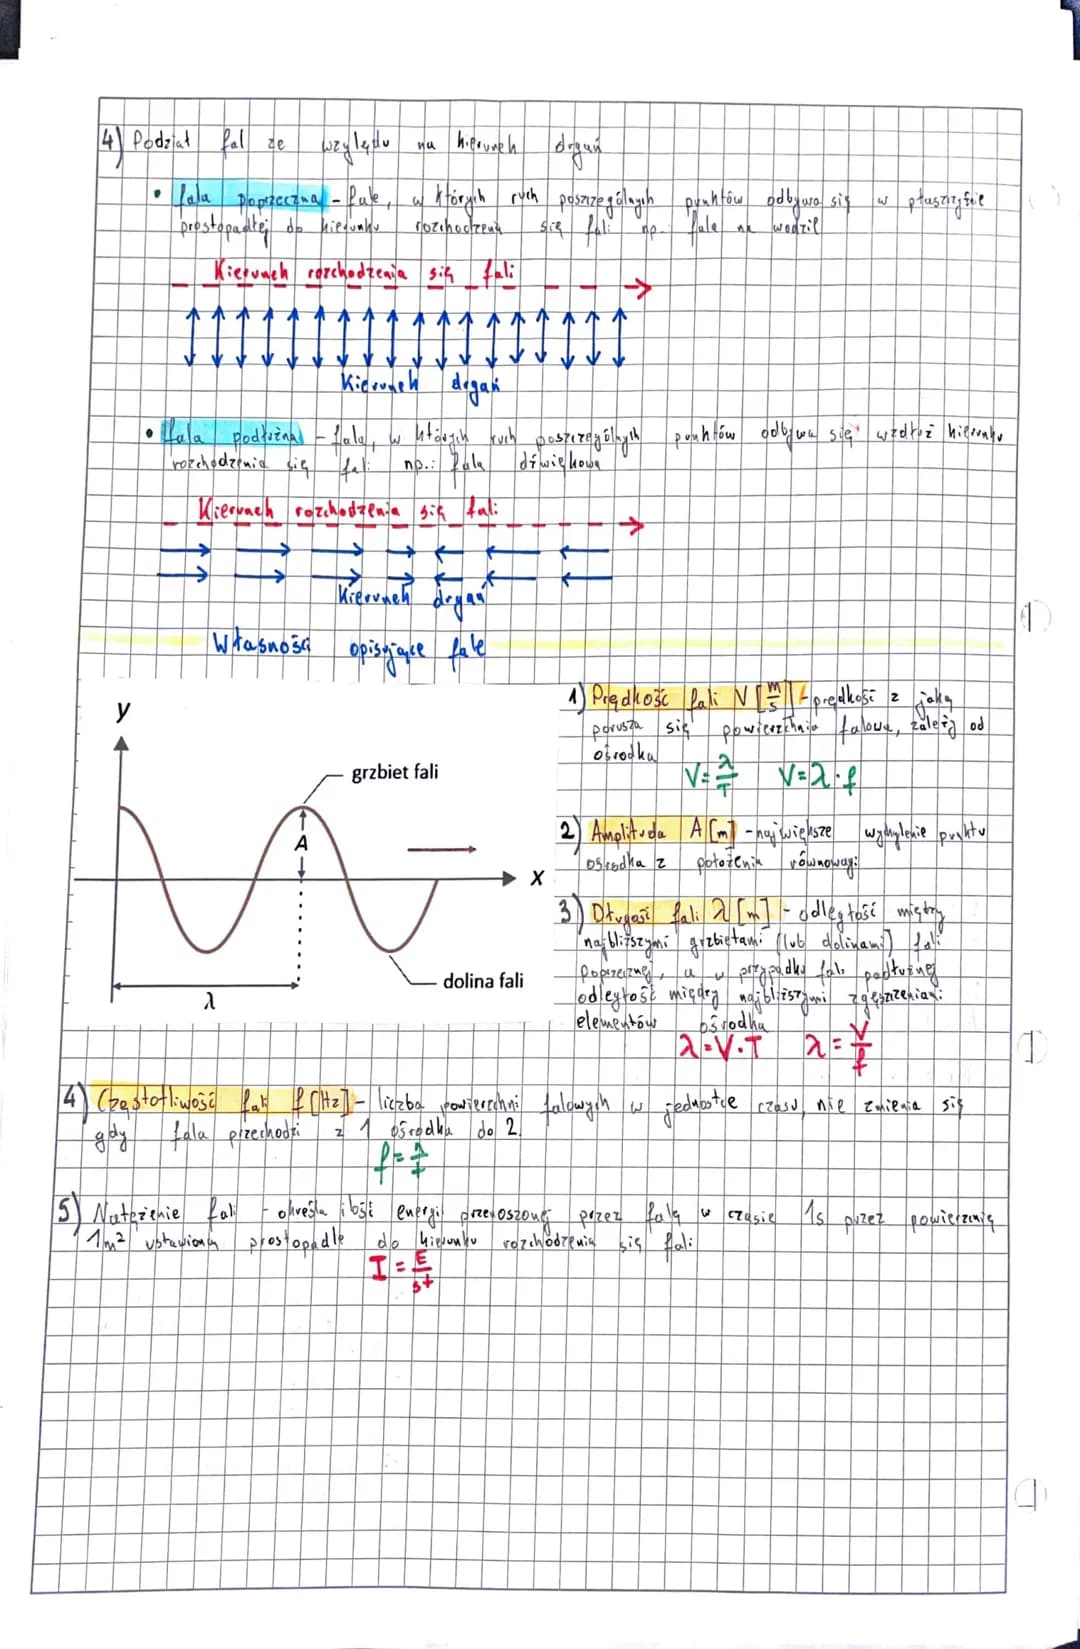 4) Podział fal ze względu na kierunek drgań
• fala poprzeczna - fale, w których ruch poszczególnych punktów odbywa się w płaszczyźnie
prostopadłej do kierunku rozchodzenia się fali np. fale na wodzie
Kierunek rozchodzenia się fali
Kierunek drgań
• fala podłużna - fala, w których ruch poszczególnych punktów odbywa się wzdłuż kierunku
rozchodzenia się fali np.: fala dźwiękowa
Kierunek rozchodzenia się fali
Kierunek drgań
Własności opisujące fale
y
grzbiet fali
A
x
dolina fali
λ
1) Prędkość fali V [m/s] - prędkość z jaką
porusza się powierzchnia falowa, zależy od
ośrodka
V = λ/T V = λ · f
2) Amplituda A [m] - największe wychylenie punktu
ośrodka z położenia równowagi
3) Długość fali λ [m] - odległość między
najbliższymi grzbietami (lub dolinami) fali
poprzecznej, a w przypadku fali podłużnej
odległość między najbliższymi zgęszczeniami
elementów ośrodka
λ = V · T λ = V/f
4) Częstotliwość fali f [Hz] - liczba powierzchni falowych w jednostce czasu, nie zmienia się
gdy fala przechodzi z 1 ośrodka do 2.
5) Natężenie fali - określa ilość energii przenoszonej przez falę w czasie 1s przez powierzchnię
1m² ustawioną prostopadle do kierunku rozchodzenia się fali
I = E/st